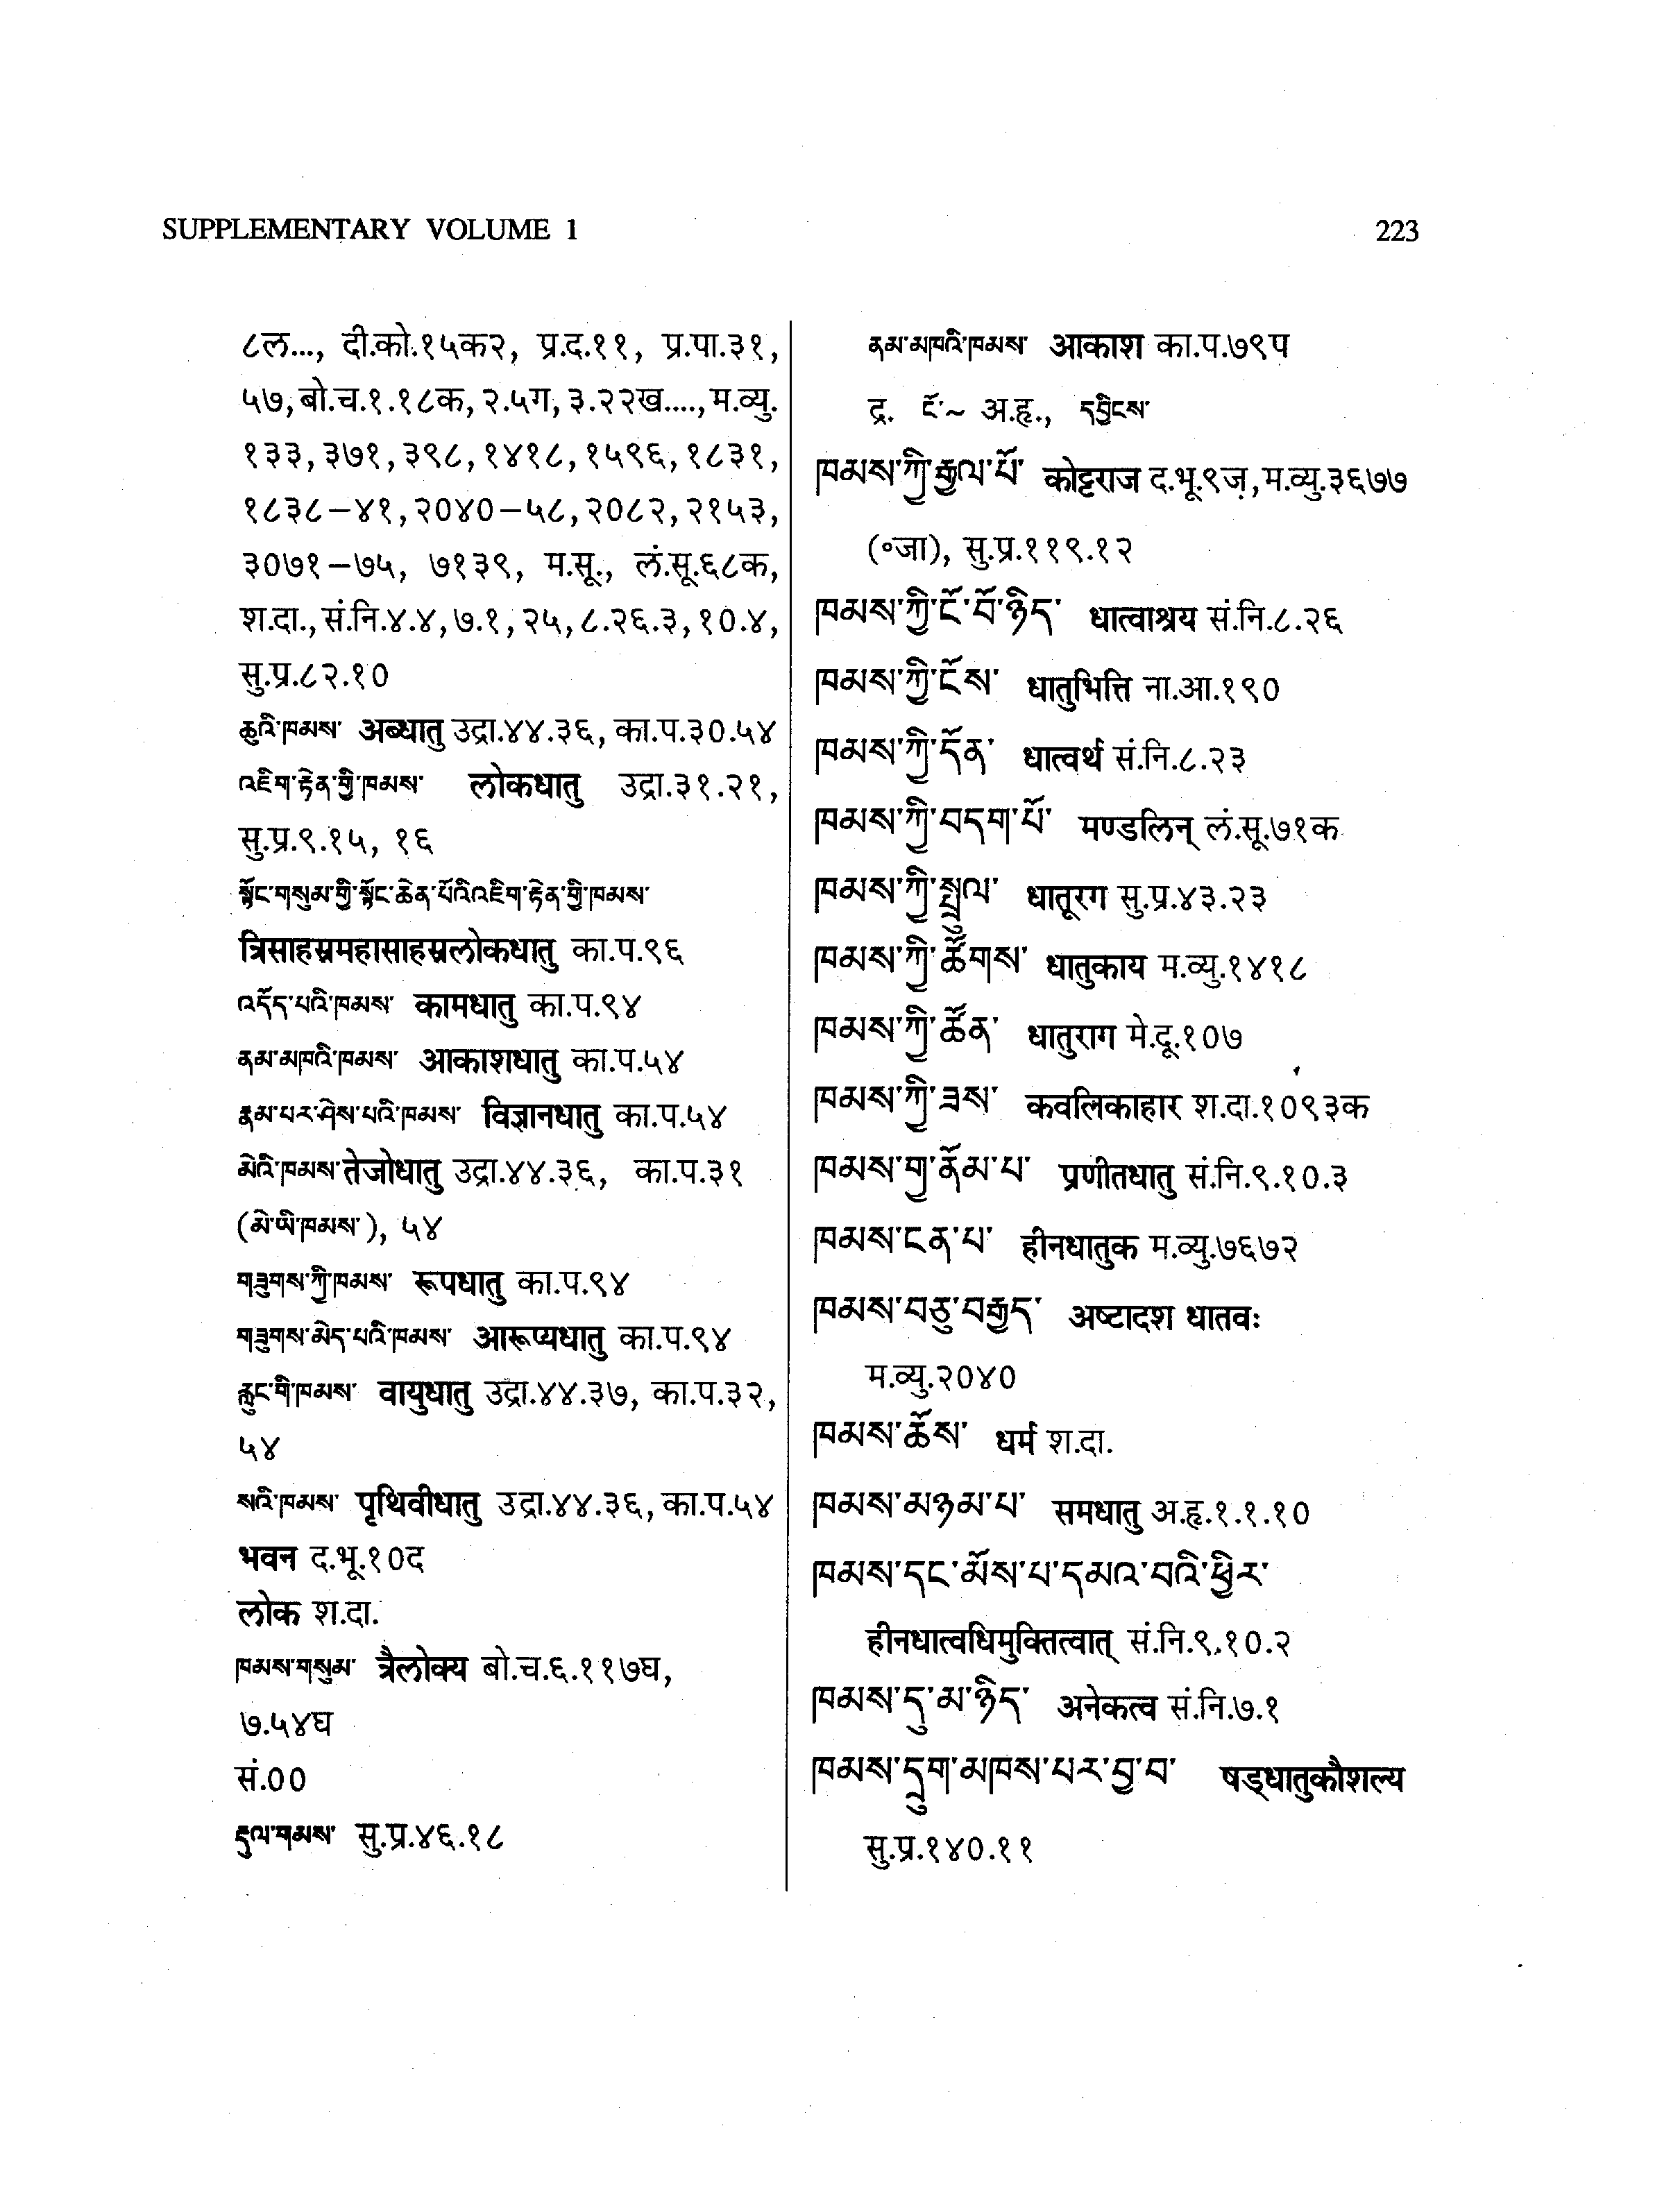 SUPPLEMENTARY VOLUME 1 223
८ल..., दी.को.१५क२, प्र.द.११, प्र.पा.३१,
५७, बो.च.१.१८क, २.५ग, ३.२२ख...., म.व्यु.
१३३, ३७१, ३९८, १४१८, १५९६, १८३१,
१८३८-४१, २०४०-५८, २०८२, २१५३,
३०७१-७५, ७१३९, म.सू., लं.सू.६८क,
श.दा., सं.नि.४.४, ७.१, २५, ८.२६.३, १०.४,
सु.प्र.८२.१०
ཆུའི་ཁམས་ अब्धातु उद्रा.४४.३६, का.प.३०.५४
འཇིག་རྟེན་གྱི་ཁམས་ लोकधातु उद्रा.३१.२१,
सु.प्र.९.१५, १६
སྟོང་གསུམ་གྱི་སྟོང་ཆེན་པོའི་འཇིག་རྟེན་གྱི་ཁམས་
त्रिसाहस्रमहासाहस्रलोकधातु का.प.९६
འདོད་པའི་ཁམས་ कामधातु का.प.९४
ནམ་མཁའི་ཁམས་ आकाशधातु का.प.५४
རྣམ་པར་ཤེས་པའི་ཁམས་ विज्ञानधातु का.प.५४
མེའི་ཁམས་ तेजोधातु उद्रा.४४.३६, का.प.३१
(མེ་ཡི་ཁམས་), ५४
གཟུགས་ཀྱི་ཁམས་ रूपधातु का.प.९४
གཟུགས་མེད་པའི་ཁམས་ आरूप्यधातु का.प.९४
རླུང་གི་ཁམས་ वायुधातु उद्रा.४४.३७, का.प.३२,
५४
སའི་ཁམས་ पृथिवीधातु उद्रा.४४.३६, का.प.५४
भवन द.भू.१०द
लोक श.दा.
ཁམས་གསུམ་ त्रैलोक्य बो.च.६.११७घ,
७.५४घ
सं.00
དུལ་གམས་ सु.प्र.४६.१८
ནམ་མཁའི་ཁམས་ आकाश का.प.७९प
द्र. ངོ་~ अ.हृ., དབྱིངས་
ཁམས་ཀྱི་རྒྱལ་པོ་ कोट्टराज द.भू.९ज़, म.व्यु.३६७७
(०जा), सु.प्र.११९.१२
ཁམས་ཀྱི་ངོ་བོ་ཉིད་ धात्वाश्रय सं.नि.८.२६
ཁམས་ཀྱི་ངོས་ धातुभित्ति ना.आ.१९०
ཁམས་ཀྱི་དོན་ धात्वर्थ सं.नि.८.२३
ཁམས་ཀྱི་བདག་པོ་ मण्डलिन् लं.सू.७१क
ཁམས་ཀྱི་སྦྲུལ་ धातूरग सु.प्र.४३.२३
ཁམས་ཀྱི་ཚོགས་ धातुकाय म.व्यु.१४१८
ཁམས་ཀྱི་ཚོན་ धातुराग मे.दू.१०७
ཁམས་ཀྱི་ཟས་ कवलिकाहार श.दा.१०९३क
ཁམས་གྱ་ནོམ་པ་ प्रणीतधातु सं.नि.९.१०.३
ཁམས་ངན་པ་ हीनधातुक म.व्यु.७६७२
ཁམས་བཅུ་བརྒྱད་ अष्टादश धातवः
म.व्यु.२०४०
ཁམས་ཆོས་ धर्म श.दा.
ཁམས་མཉམ་པ་ समधातु अ.हृ.१.१.१०
ཁམས་དང་མོས་པ་དམའ་བའི་ཕྱིར་
हीनधात्वधिमुक्तित्वात् सं.नि.९.१०.२
ཁམས་དུ་མ་ཉིད་ अनेकत्व सं.नि.७.१
ཁམས་དྲུག་མཁས་པར་བྱ་བ་ षड्धातुकौशल्य
सु.प्र.१४०.११